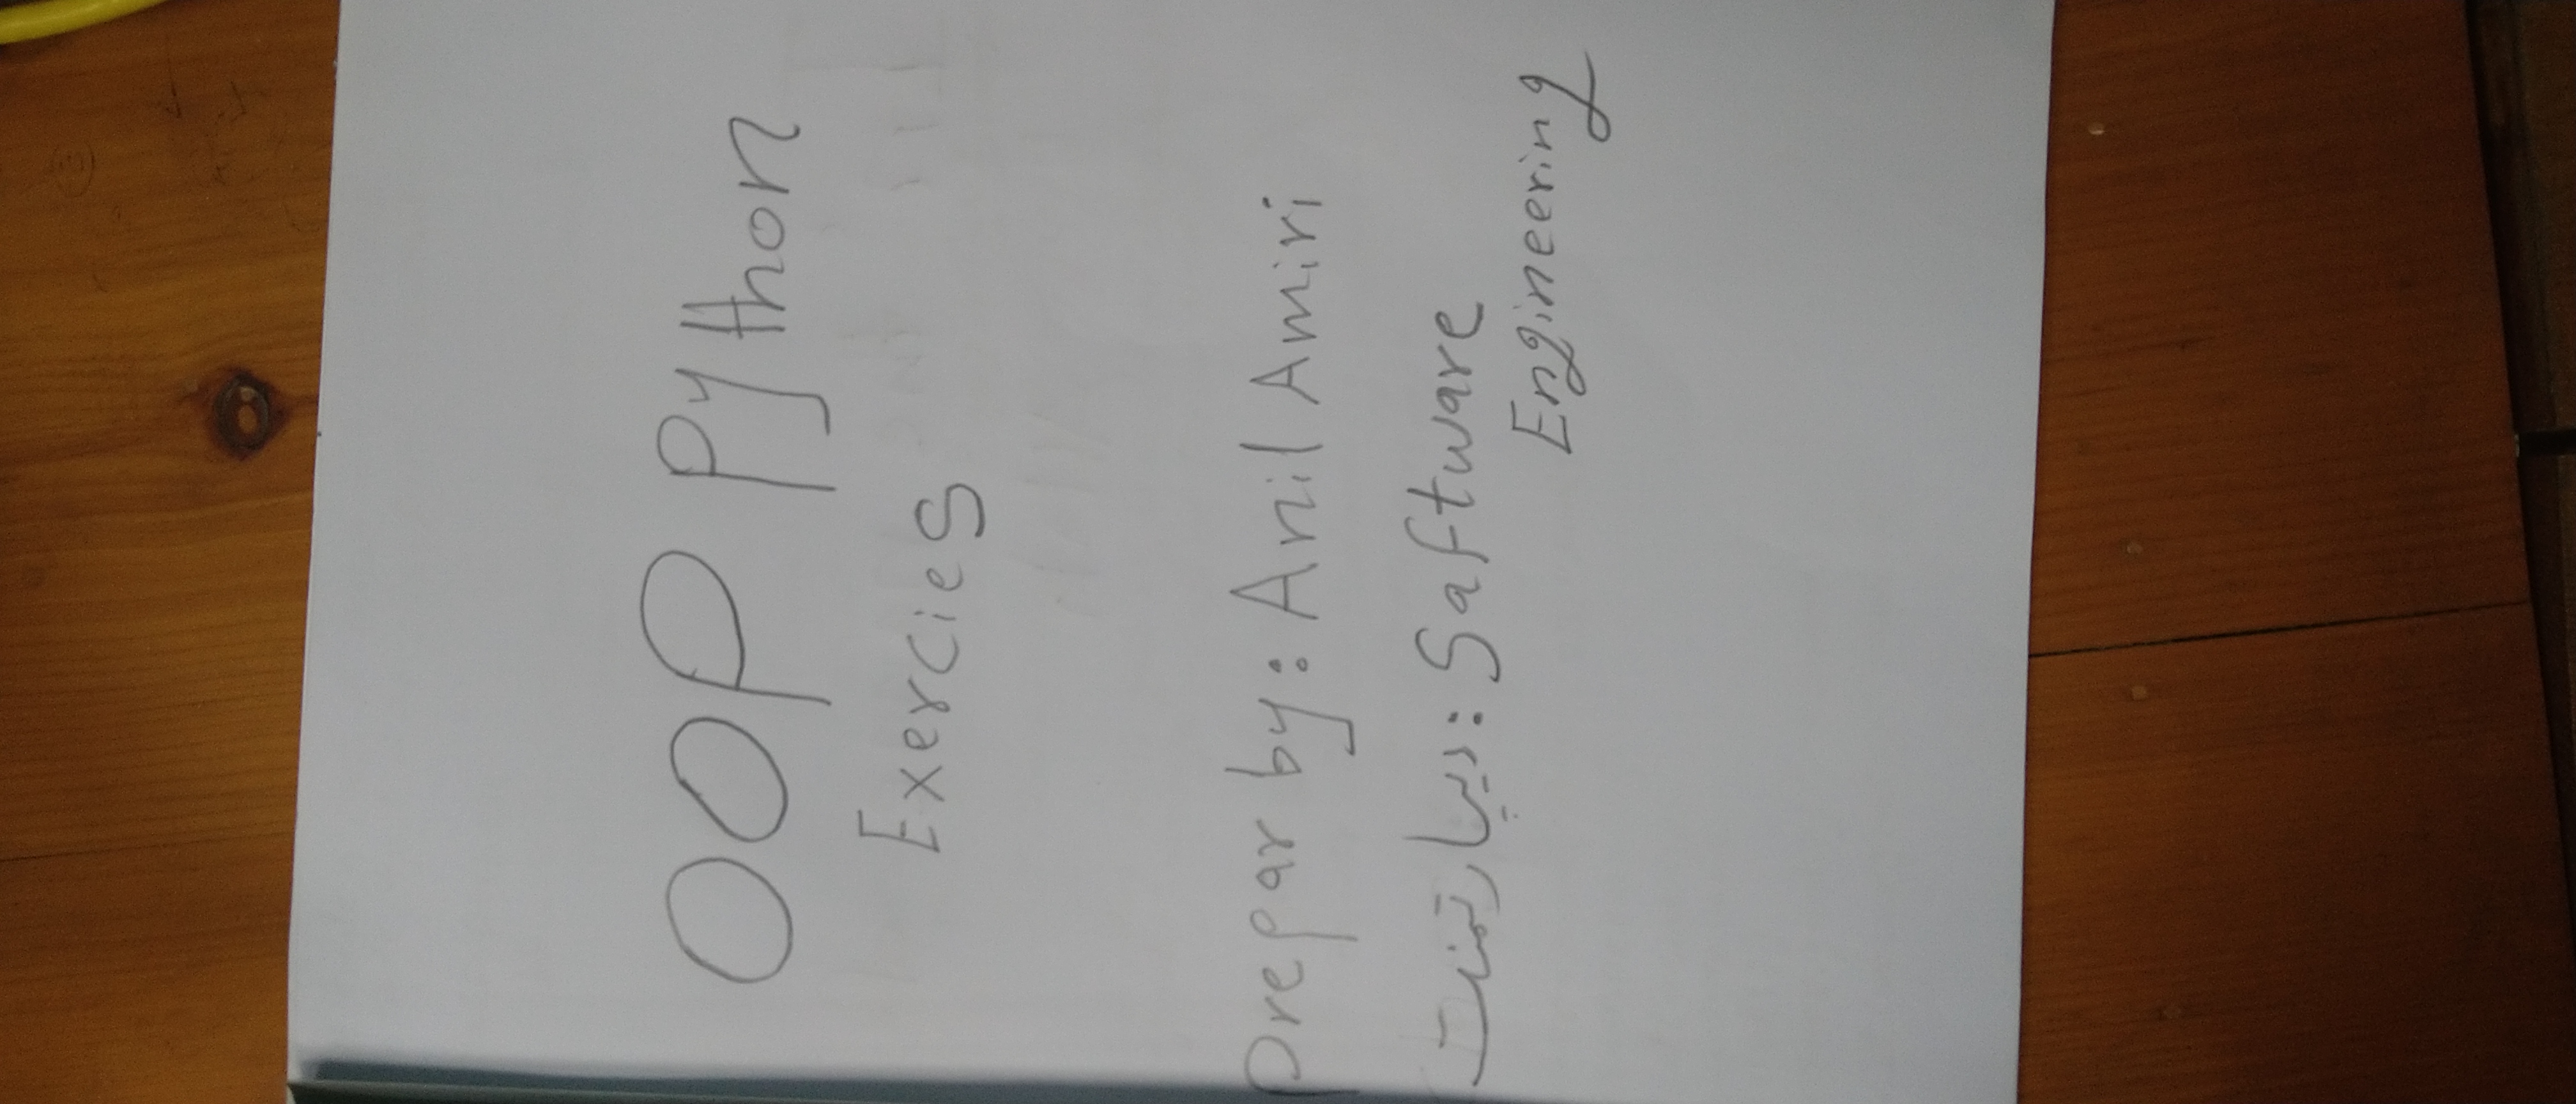 OOP Python
Exercies
Prepar by: Anil Amiri
دیپارتمنت: Saftware
Engineering